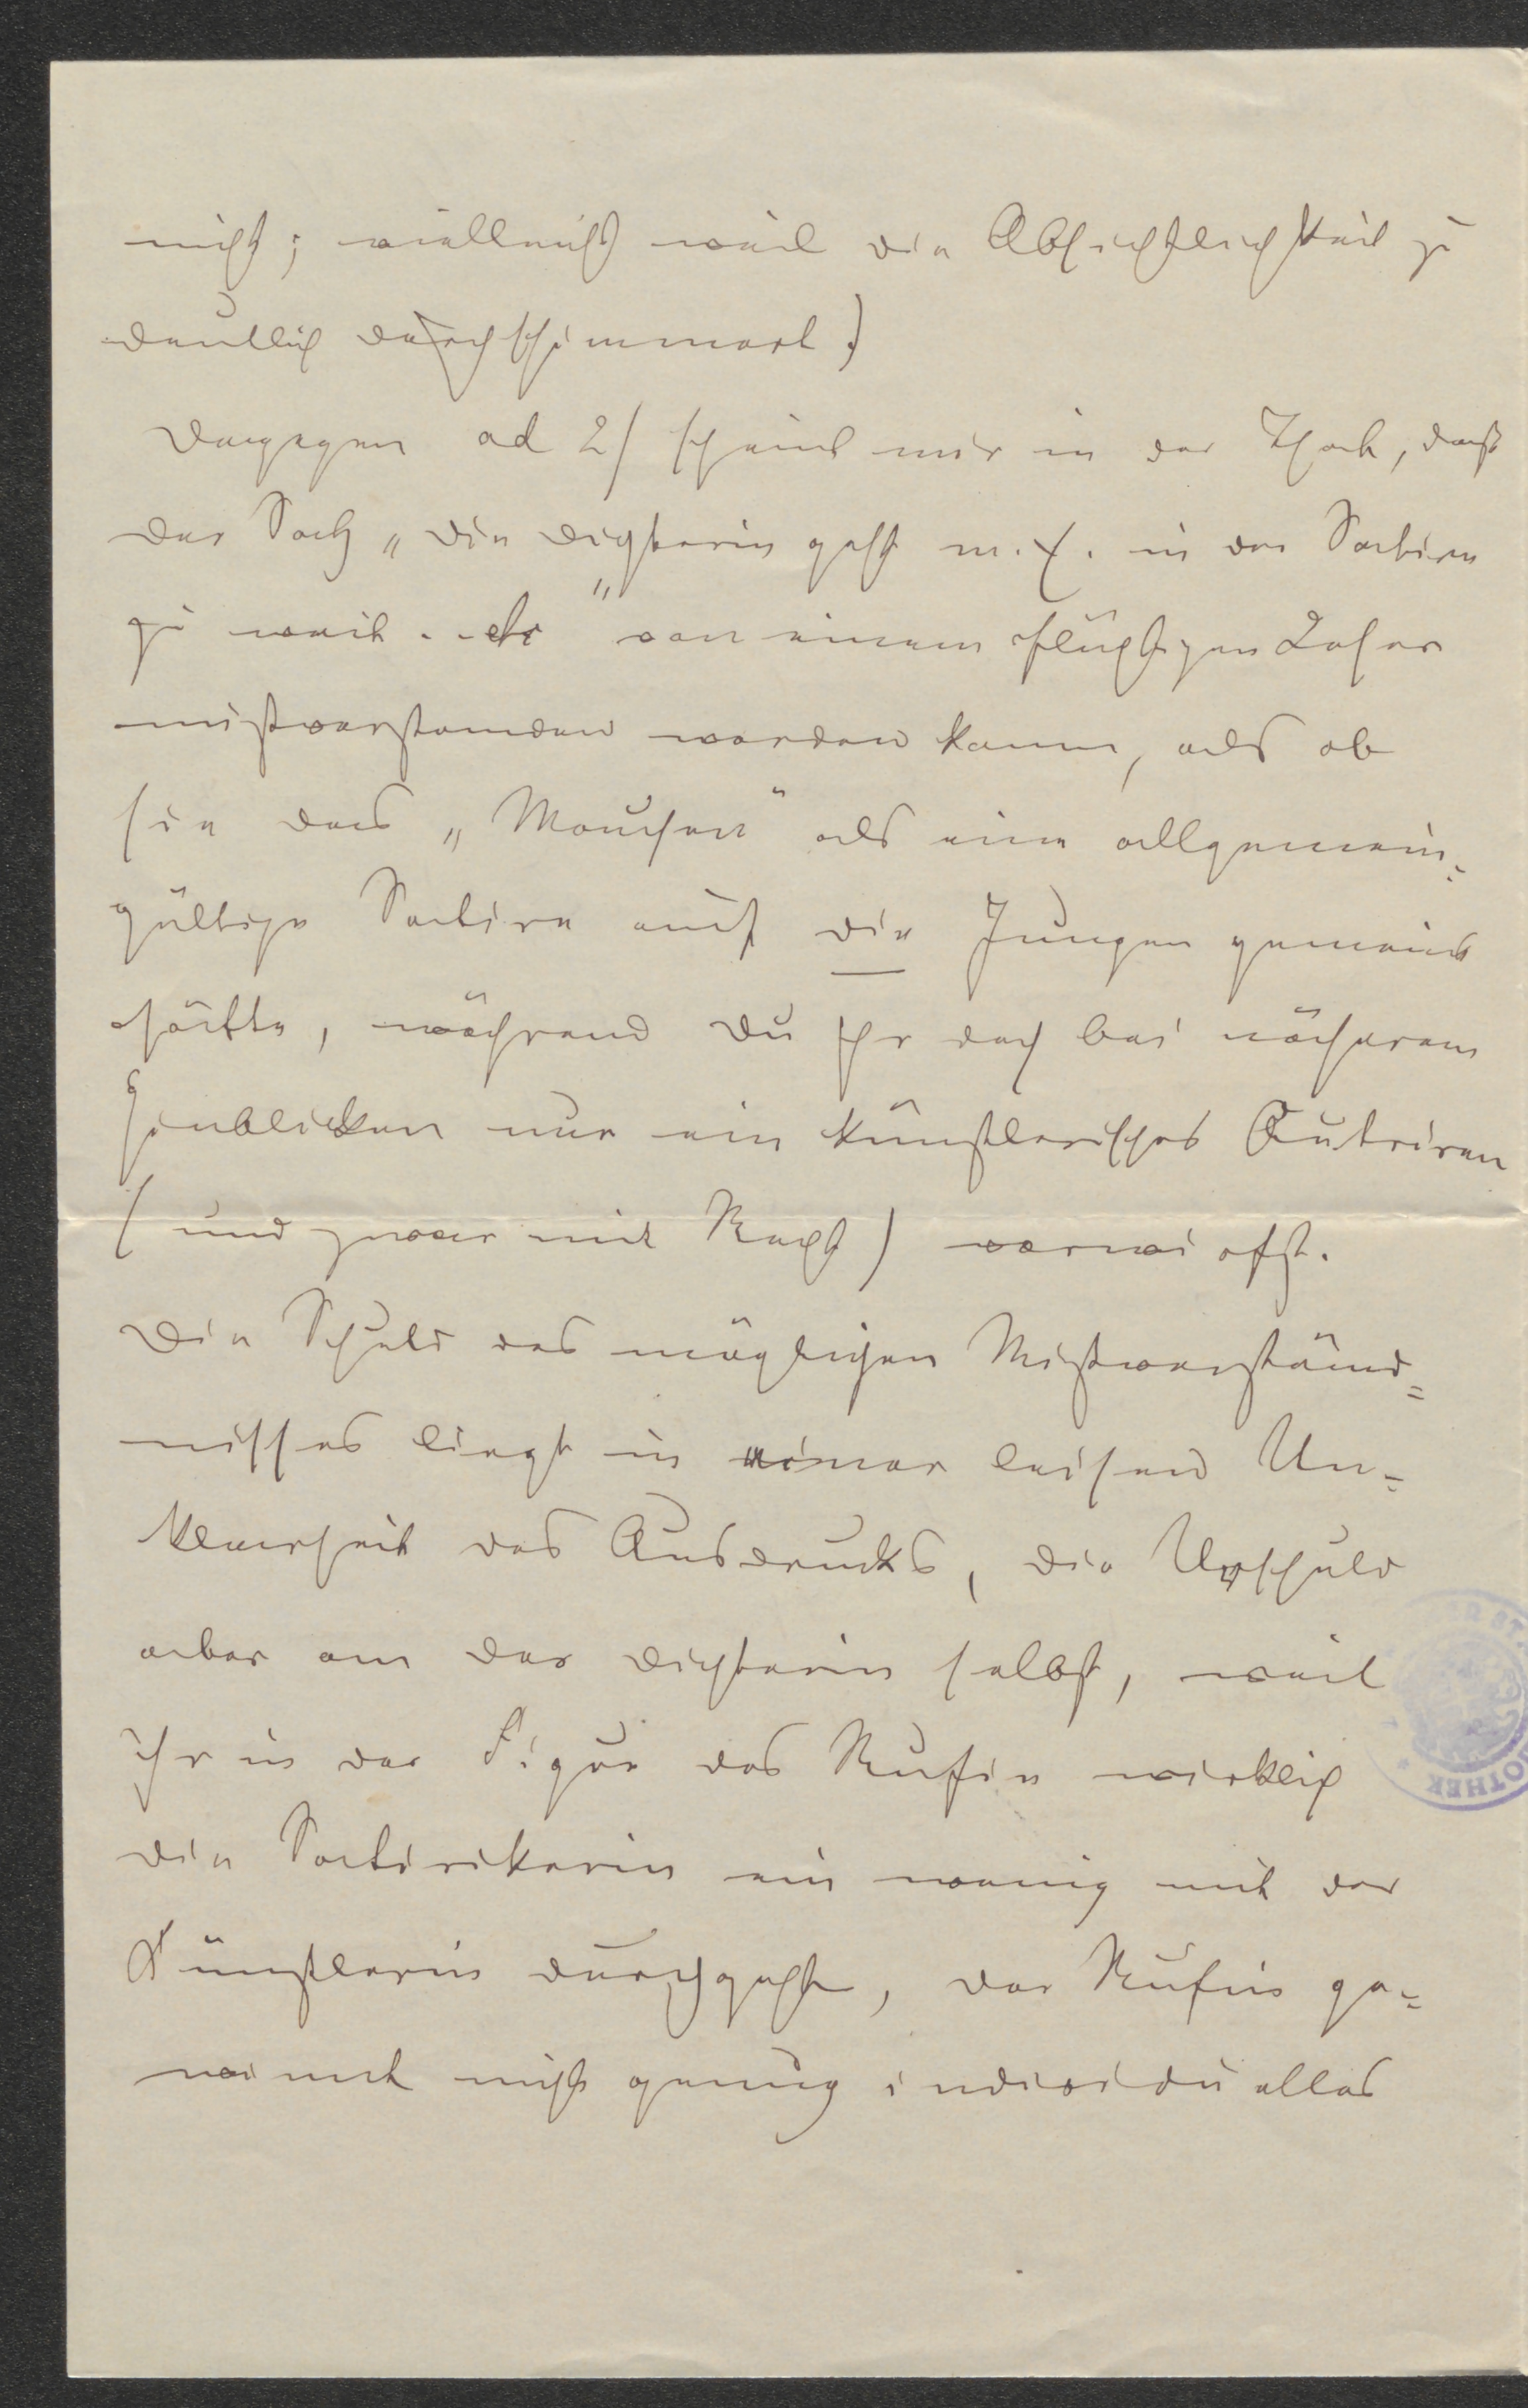 nicht; vielleicht weil die Absichtlichkeit zu
deutlich durchschimmert.)
Dagegen ad 2/ scheint mir in der That, daß
der Satz „die Dichterin geht m. E. in der Satire
zu weit . . etc“ von einem flüchtigen Leser
mißverstanden werden kann, als ob
sie das „Mauchen“ als eine allgemein=
gültige Satire auf die Jungen gemeint
hätte, während Du ihr doch bei näherem
Hinblicken nur ein künstlerisches Outriren
(und zwar mit Recht) vorwirfst.
Die Schuld des möglichen Mißverständ=
nisses liegt in einer leisen Un=
klarheit des Ausdrucks, die Urschuld
aber an der Dichterin selbst, weil
ihr in der Figur des Rufin wirklich
die Satirikerin ein wenig mit der
Künstlerin durchgeht, der Rufin ge=
winnt nicht genug individuelles
OTHEK